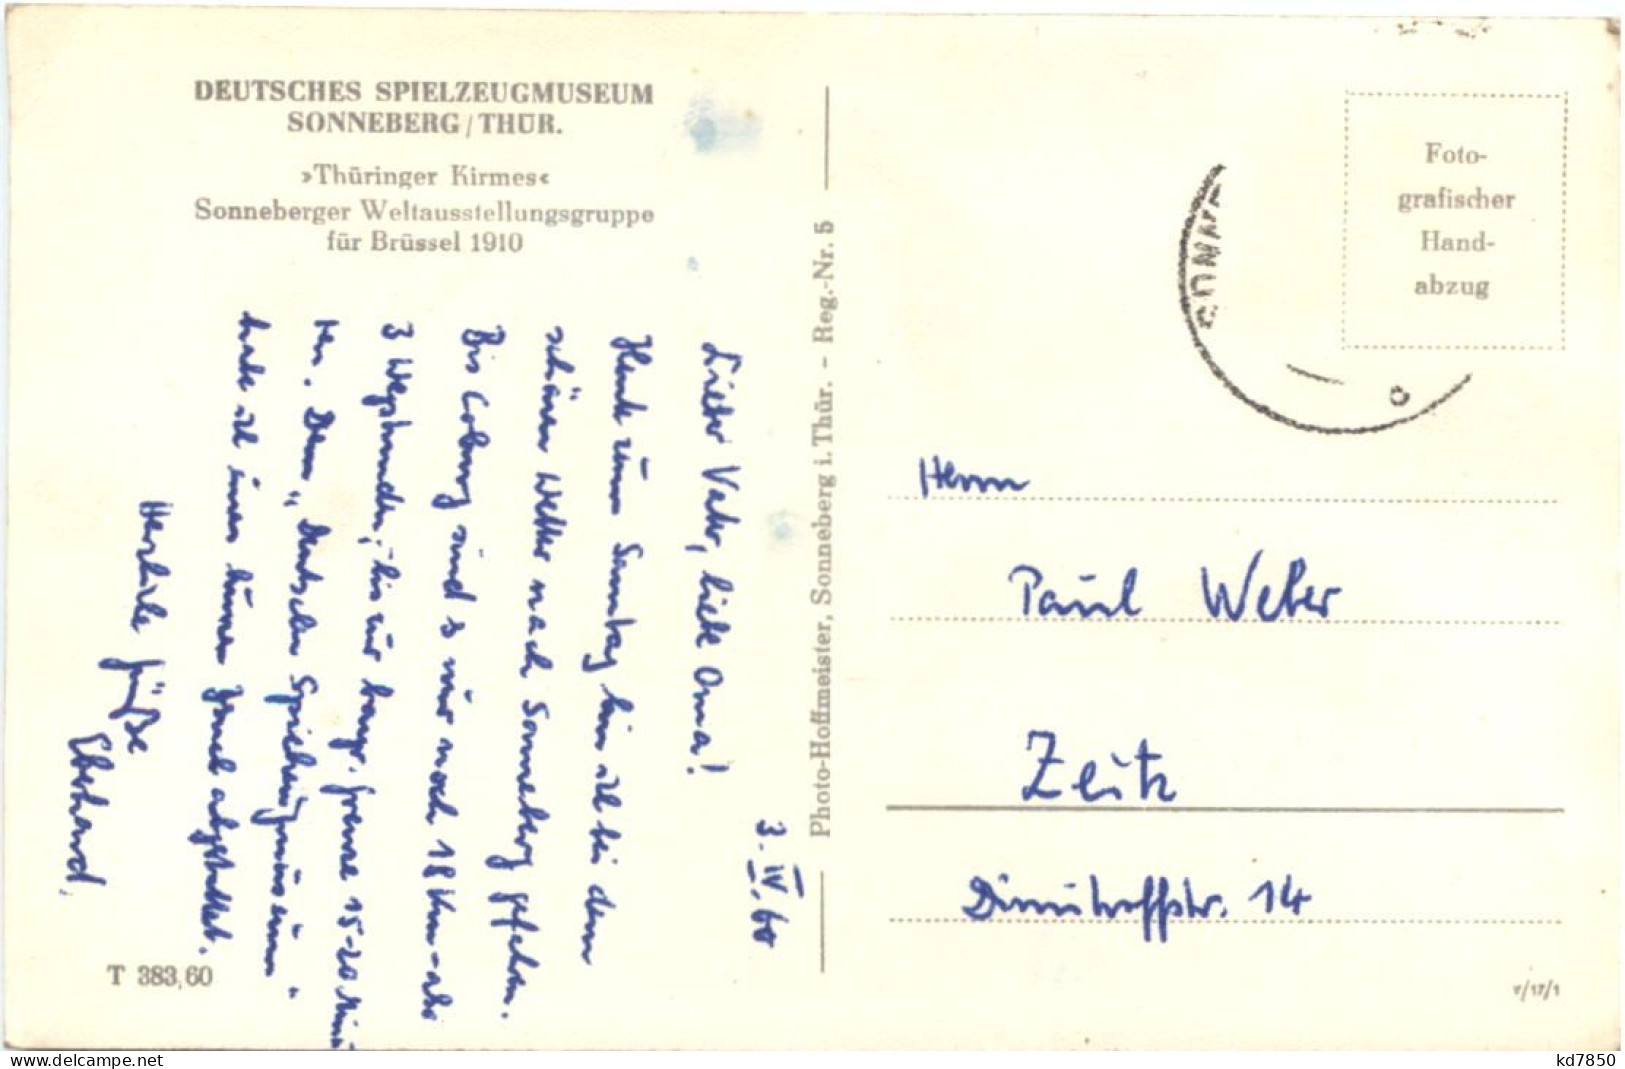 DEUTSCHES SPIELZEUGMUSEUM
SONNEBERG / THÜR.
»Thüringer Kirmes«
Sonneberger Weltausstellungsgruppe
für Brüssel 1910
3. IV. 60
Lieber Vater, liebe Oma!
Heute zum Sonntag bin ich bei dem
schönen Wetter nach Sonneberg gefahren.
Bis Coburg sind's nur noch 18 km - also
3 Wegstunden, bis zur bayr. Grenze 15-20 Minu-
ten. Dem „Deutschen Spielzeugmuseum"
habe ich einen kurzen Besuch abgestattet.
Herzliche Grüße
Eberhard.
T 383,60
Photo-Hoffmeister, Sonneberg i. Thür. - Reg.-Nr. 5
Foto-
grafischer
Hand-
abzug
SONNE
Herrn
Paul Weber
Zeitz
Dimitroffstr. 14
V/17/1
kd7850
www.delcampe.net